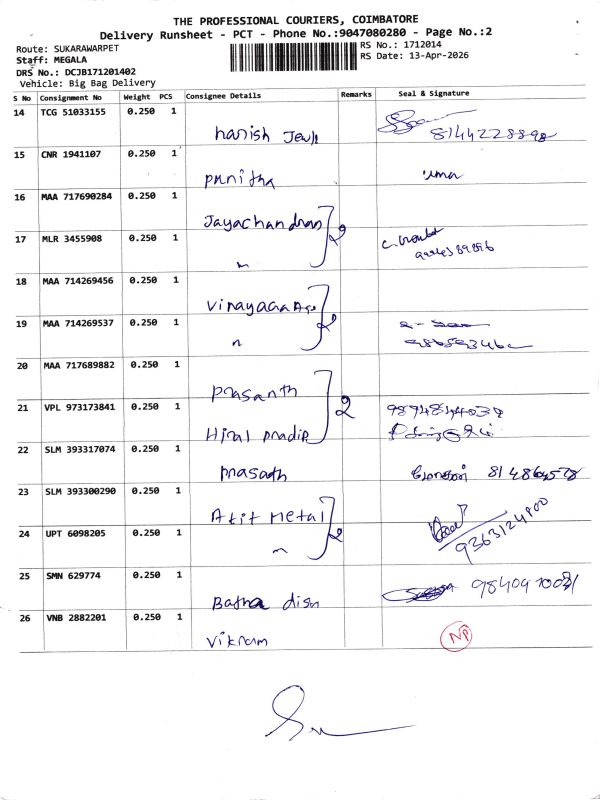 THE PROFESSIONAL COURIERS, COIMBATORE
Delivery Runsheet - PCT - Phone No.:9047080280 - Page No.:2
Route: SUKARAWARPET
Staff: MEGALA
DRS No.: DCJB171201402
Vehicle: Big Bag Delivery
RS No.: 1712014
RS Date: 13-Apr-2026
S No Consignment No Weight PCS Consignee Details Remarks Seal & Signature
14 TCG 51033155 0.250 1 harish Jewll 8144228898
15 CNR 1941107 0.250 1 punitha uma
16 MAA 717690284 0.250 1 Jayachandran 2
17 MLR 3455908 0.250 1 "
18 MAA 714269456 0.250 1 Vinayaga 2
19 MAA 714269537 0.250 1 "
20 MAA 717689882 0.250 1 Prasanth 2
21 VPL 973173841 0.250 1 Hiral pradip
22 SLM 393317074 0.250 1 prasath
23 SLM 393300290 0.250 1 Akit Metal 2
24 UPT 6098205 0.250 1 " 9363124900
25 SMN 629774 0.250 1 Batna dish
26 VNB 2882201 0.250 1 Vikram NP